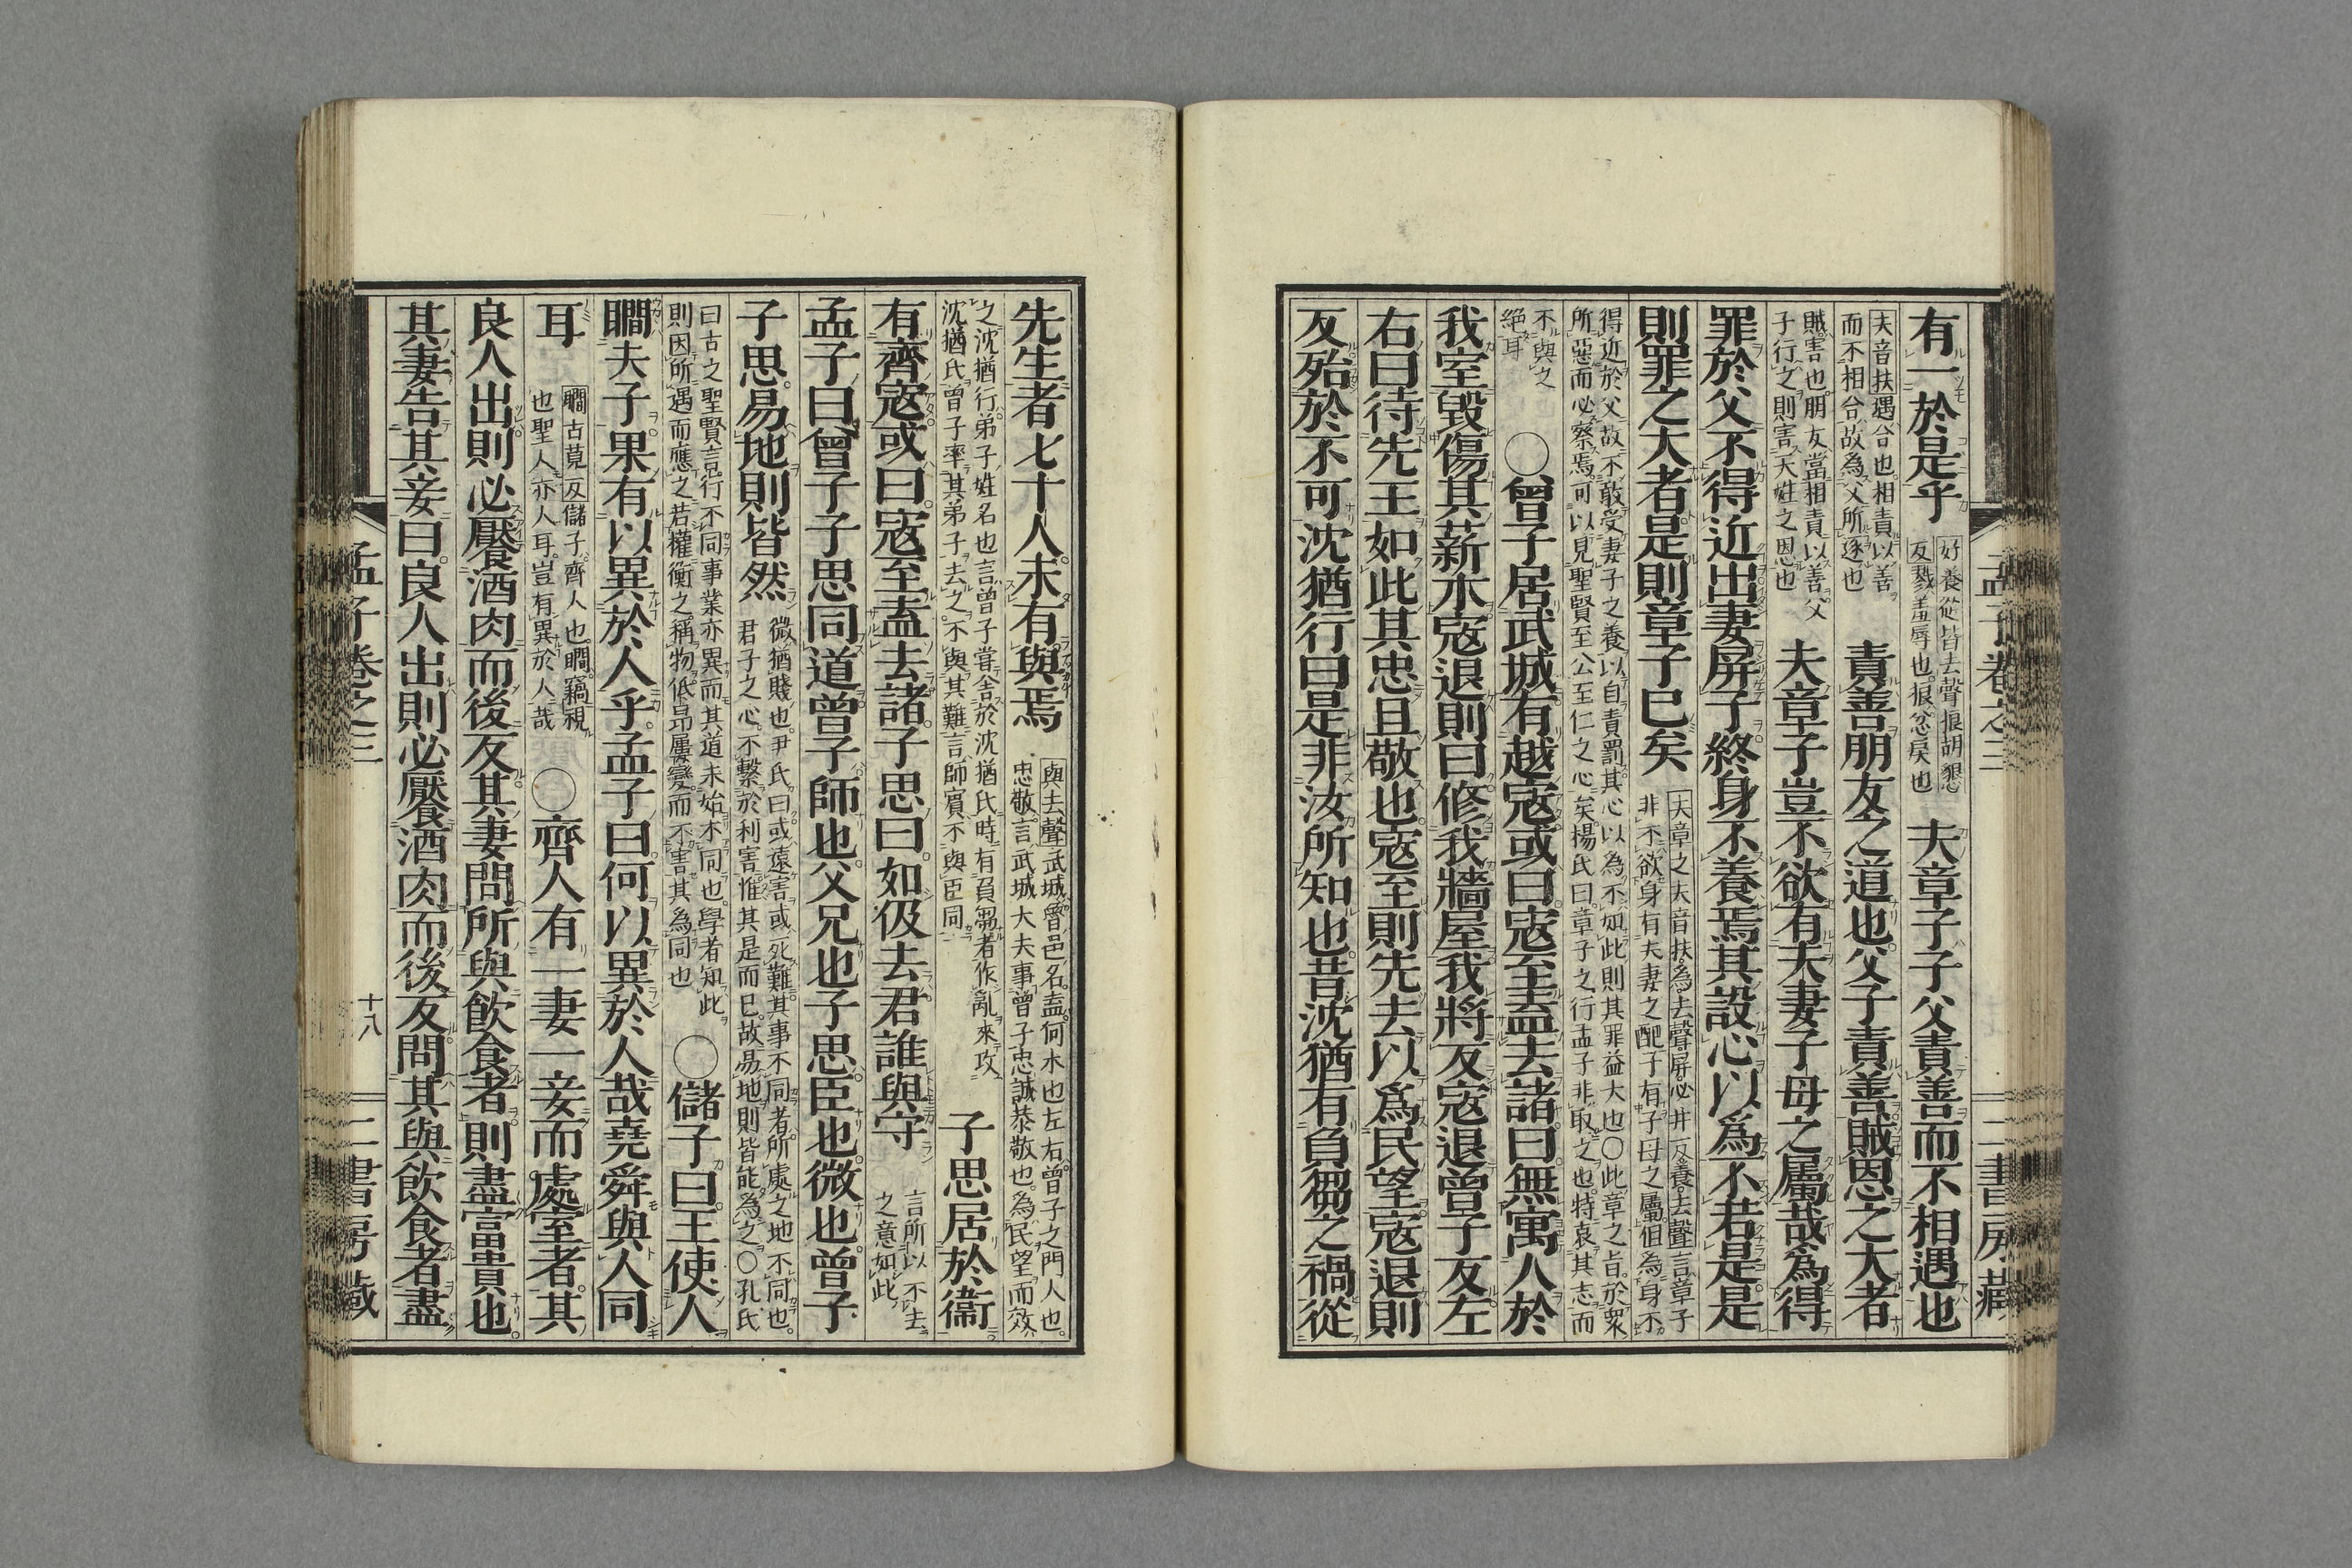 孟子卷之三
二書房藏
有一於是乎 好養從皆去聲很胡懇反戮羞辱也很忿戾也 夫章子子父責善而不相遇也
夫音扶遇合也相責以善而不相合故為父所逐也 責善朋友之道也父子責善賊恩之大者
賊害也朋友當相責以善父子行之則害天性之恩也 夫章子豈不欲有夫妻子母之屬哉為得
罪於父不得近出妻屏子終身不養焉其設心以為不若是是
則罪之大者是則章子已矣 夫章之夫音扶為去聲屏必井反養去聲言章子非不欲身有夫妻之配子有子母之屬但為身不
得近於父故不敢受妻子之養以自責罰其心以為不如此則其罪益大也○此章之旨於衆所惡而必察焉可以見聖賢至公至仁之心矣楊氏曰章子之行孟子非取之也特哀其志而
不與之絶耳 ○曾子居武城有越寇或曰寇至盍去諸曰無寓人於
我室毀傷其薪木寇退則曰修我牆屋我將反寇退曾子反左
右曰待先王如此其忠且敬也寇至則先去以爲民望寇退則
反殆於不可沈猶行曰是非汝所知也昔沈猶有負芻之禍從
先生者七十人未有與焉 與去聲武城魯邑名盍何不也左右曾子之門人也忠敬言武城大夫事曾子忠誠恭敬也為民望而效
之沈猶行弟子姓名也言曾子嘗舍於沈猶氏時有負芻者作亂來攻沈猶氏曾子率其弟子去之不與其難言師賓不與臣同 子思居於衞
有齊寇或曰寇至盍去諸子思曰如伋去君誰與守 言所以不去之意如此
孟子曰曾子子思同道曾子師也父兄也子思臣也微也曾子
子思易地則皆然 微猶賤也尹氏曰或遠害或死難其事不同者所處之地不同也君子之心不繫於利害惟其是而已故易地則皆能為之○孔氏
曰古之聖賢言行不同事業亦異而其道未始不同也學者知此則因所遇而應之若權衡之稱物低昂屢變而不害其為同也 ○儲子曰王使人
瞷夫子果有以異於人乎孟子曰何以異於人哉堯舜與人同
耳 瞷古莧反儲子齊人也瞷竊視也聖人亦人耳豈有異於人哉 ○齊人有一妻一妾而處室者其
良人出則必饜酒肉而後反其妻問所與飮食者則盡富貴也
其妻告其妾曰良人出則必饜酒肉而後反問其與飮食者盡
孟子卷之三
十八
二書房藏